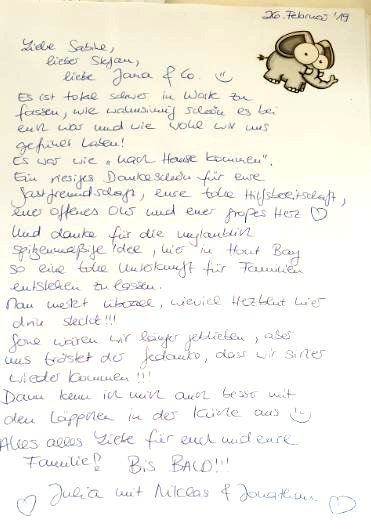 26. Februar '19
Liebe Sabine,
lieber Stefan,
liebe Jana & Co. ☺
Es ist total schwer in Worte zu
fassen, wie wahnsinnig schön es bei
euch war und wie wohl wir uns
gefühlt haben!
Es war wie „nach Hause kommen".
Ein riesiges Dankeschön für eure
Gastfreundschaft, eure tolle Hilfsbereitschaft,
euer offenes Ohr und euer großes Herz ♡
Und danke für die unglaublich
spitzenmäßige Idee, hier in Hout Bay
so eine tolle Unterkunft für Familien
entstehen zu lassen.
Man merkt überall, wieviel Herzblut hier
drin steckt!!!
Gerne wären wir länger geblieben, aber
uns tröstet der Gedanke, dass wir sicher
wieder kommen!!!
Dann kenn ich mich auch besser mit
den Läppchen in der Küche aus ☺
Alles alles Liebe für euch und eure
Familie!! Bis BALD!!!
♡ Julia mit Niklas & Jonathan ♡